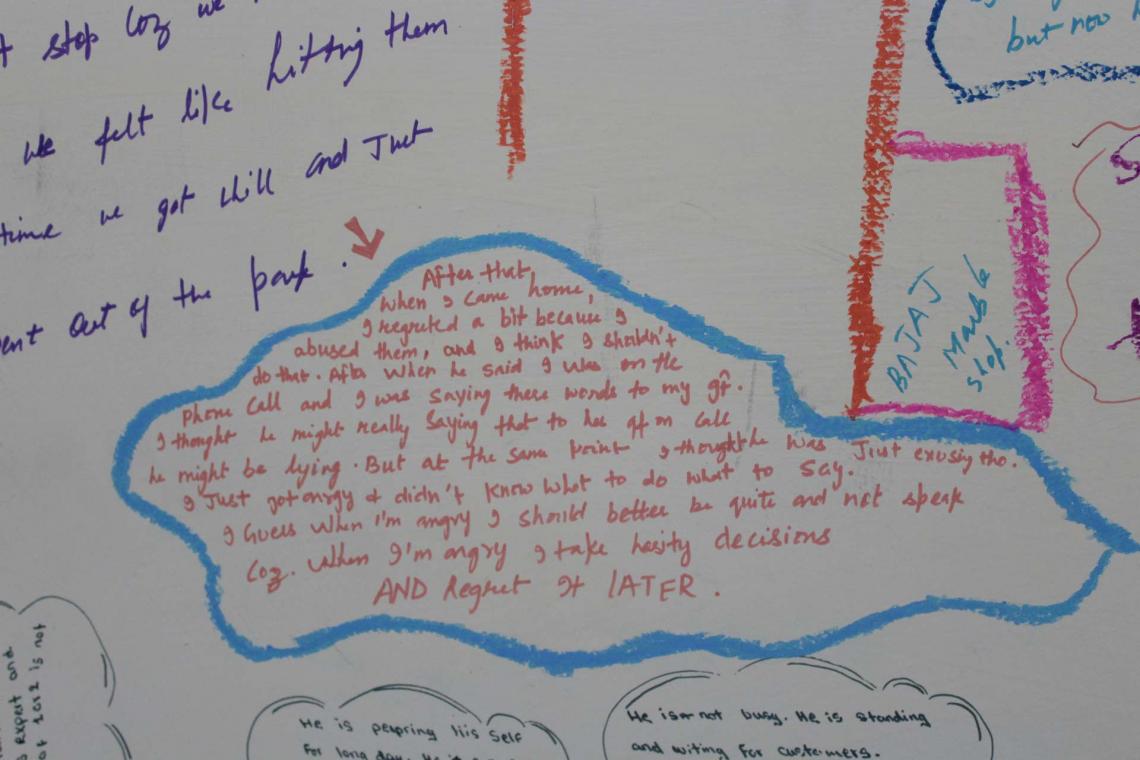 stop Coz we
we felt like hitting them
time we got chill and Just
out of the park.
but now
BAJAJ
Marble
shop.
After that,
when I came home,
I regreted a bit because I
abused them, and I think I shouldn't
do that. After when he said I was on the
phone call and I was saying these words to my gf.
I thought he might really saying that to his gf on call
he might be lying. But at the same point I thought he was Jiust exusiy tho.
I Just got angry & didn't know what to do what to say.
I Guess when I'm angry I should better be quite and not speak
Coz. when I'm angry I take hasity decisions
AND Regret It lATER.
expert and
of 2012 is not
He is pepring His Self
For long day. He is
He is or not busy. He is standing
and witing For custemers.